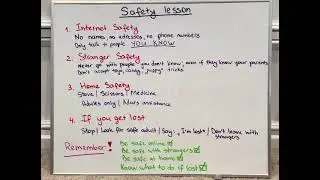 Safety lesson
1. Internet Safety
No names, no adresses, no phone numbers
Only talk to people YOU KNOW
2. Stranger Safety
Never go with people "you don't know", even if they know your parents
Don't accept toys, candy, "puppy" tricks
3. Home Safety
Stove / Scissors / Medicine
Adults only / Adults assistance
4. If you get lost
Stop / Look for safe adult / Say: "I'm lost" / Don't leave with
strangers
Remember! Be safe online ☑
Be safe with strangers ☑
Be safe at home ☑
Know what to do if lost ☑